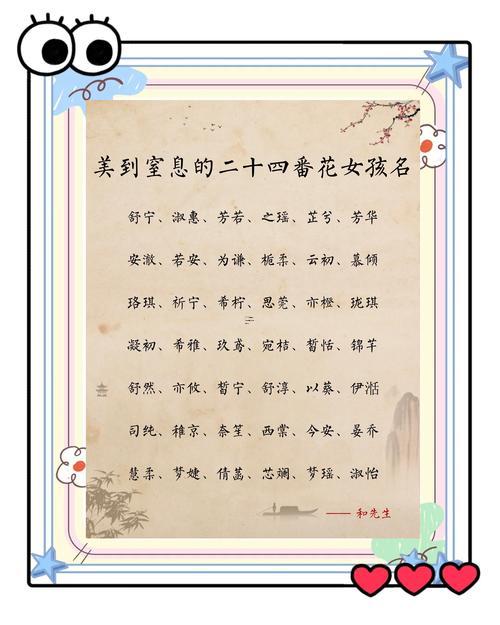 美到窒息的二十四番花女孩名
舒宁、淑惠、芳若、之瑶、芷兮、芳华
安澈、若安、为谦、栀柔、云初、慕倾
珞琪、祈宁、希柠、思莞、亦橙、珑琪
凝初、希雅、玖鸢、宛桔、皙恬、锦芊
舒然、亦攸、皙宁、舒淳、以葵、伊湉
司纯、稚京、奈笙、西棠、今安、晏乔
慧柔、梦婕、倩菡、芯斓、梦瑶、淑怡
—— 和先生